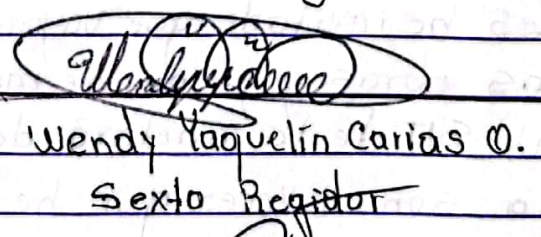 Wendy Yaquelin Carias O.
Sexto Regidor